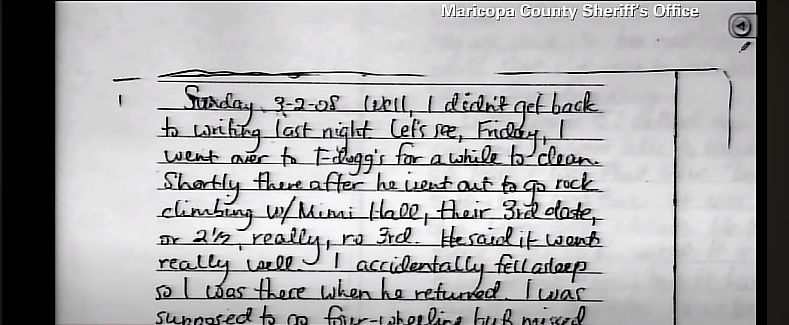 Maricopa County Sheriff's Office
Sunday, 3-2-08 Well, I didn't get back
to writing last night Let's see, Friday, I
went over to for a while to clean.
Shortly there after he went out to go rock
climbing w/Mimi Hall, their 3rd date,
or 2½, really, no 3rd. He said it went
really well. I accidentally fell asleep
so I was there when he returned. I was
supposed to go four-wheeling but missed